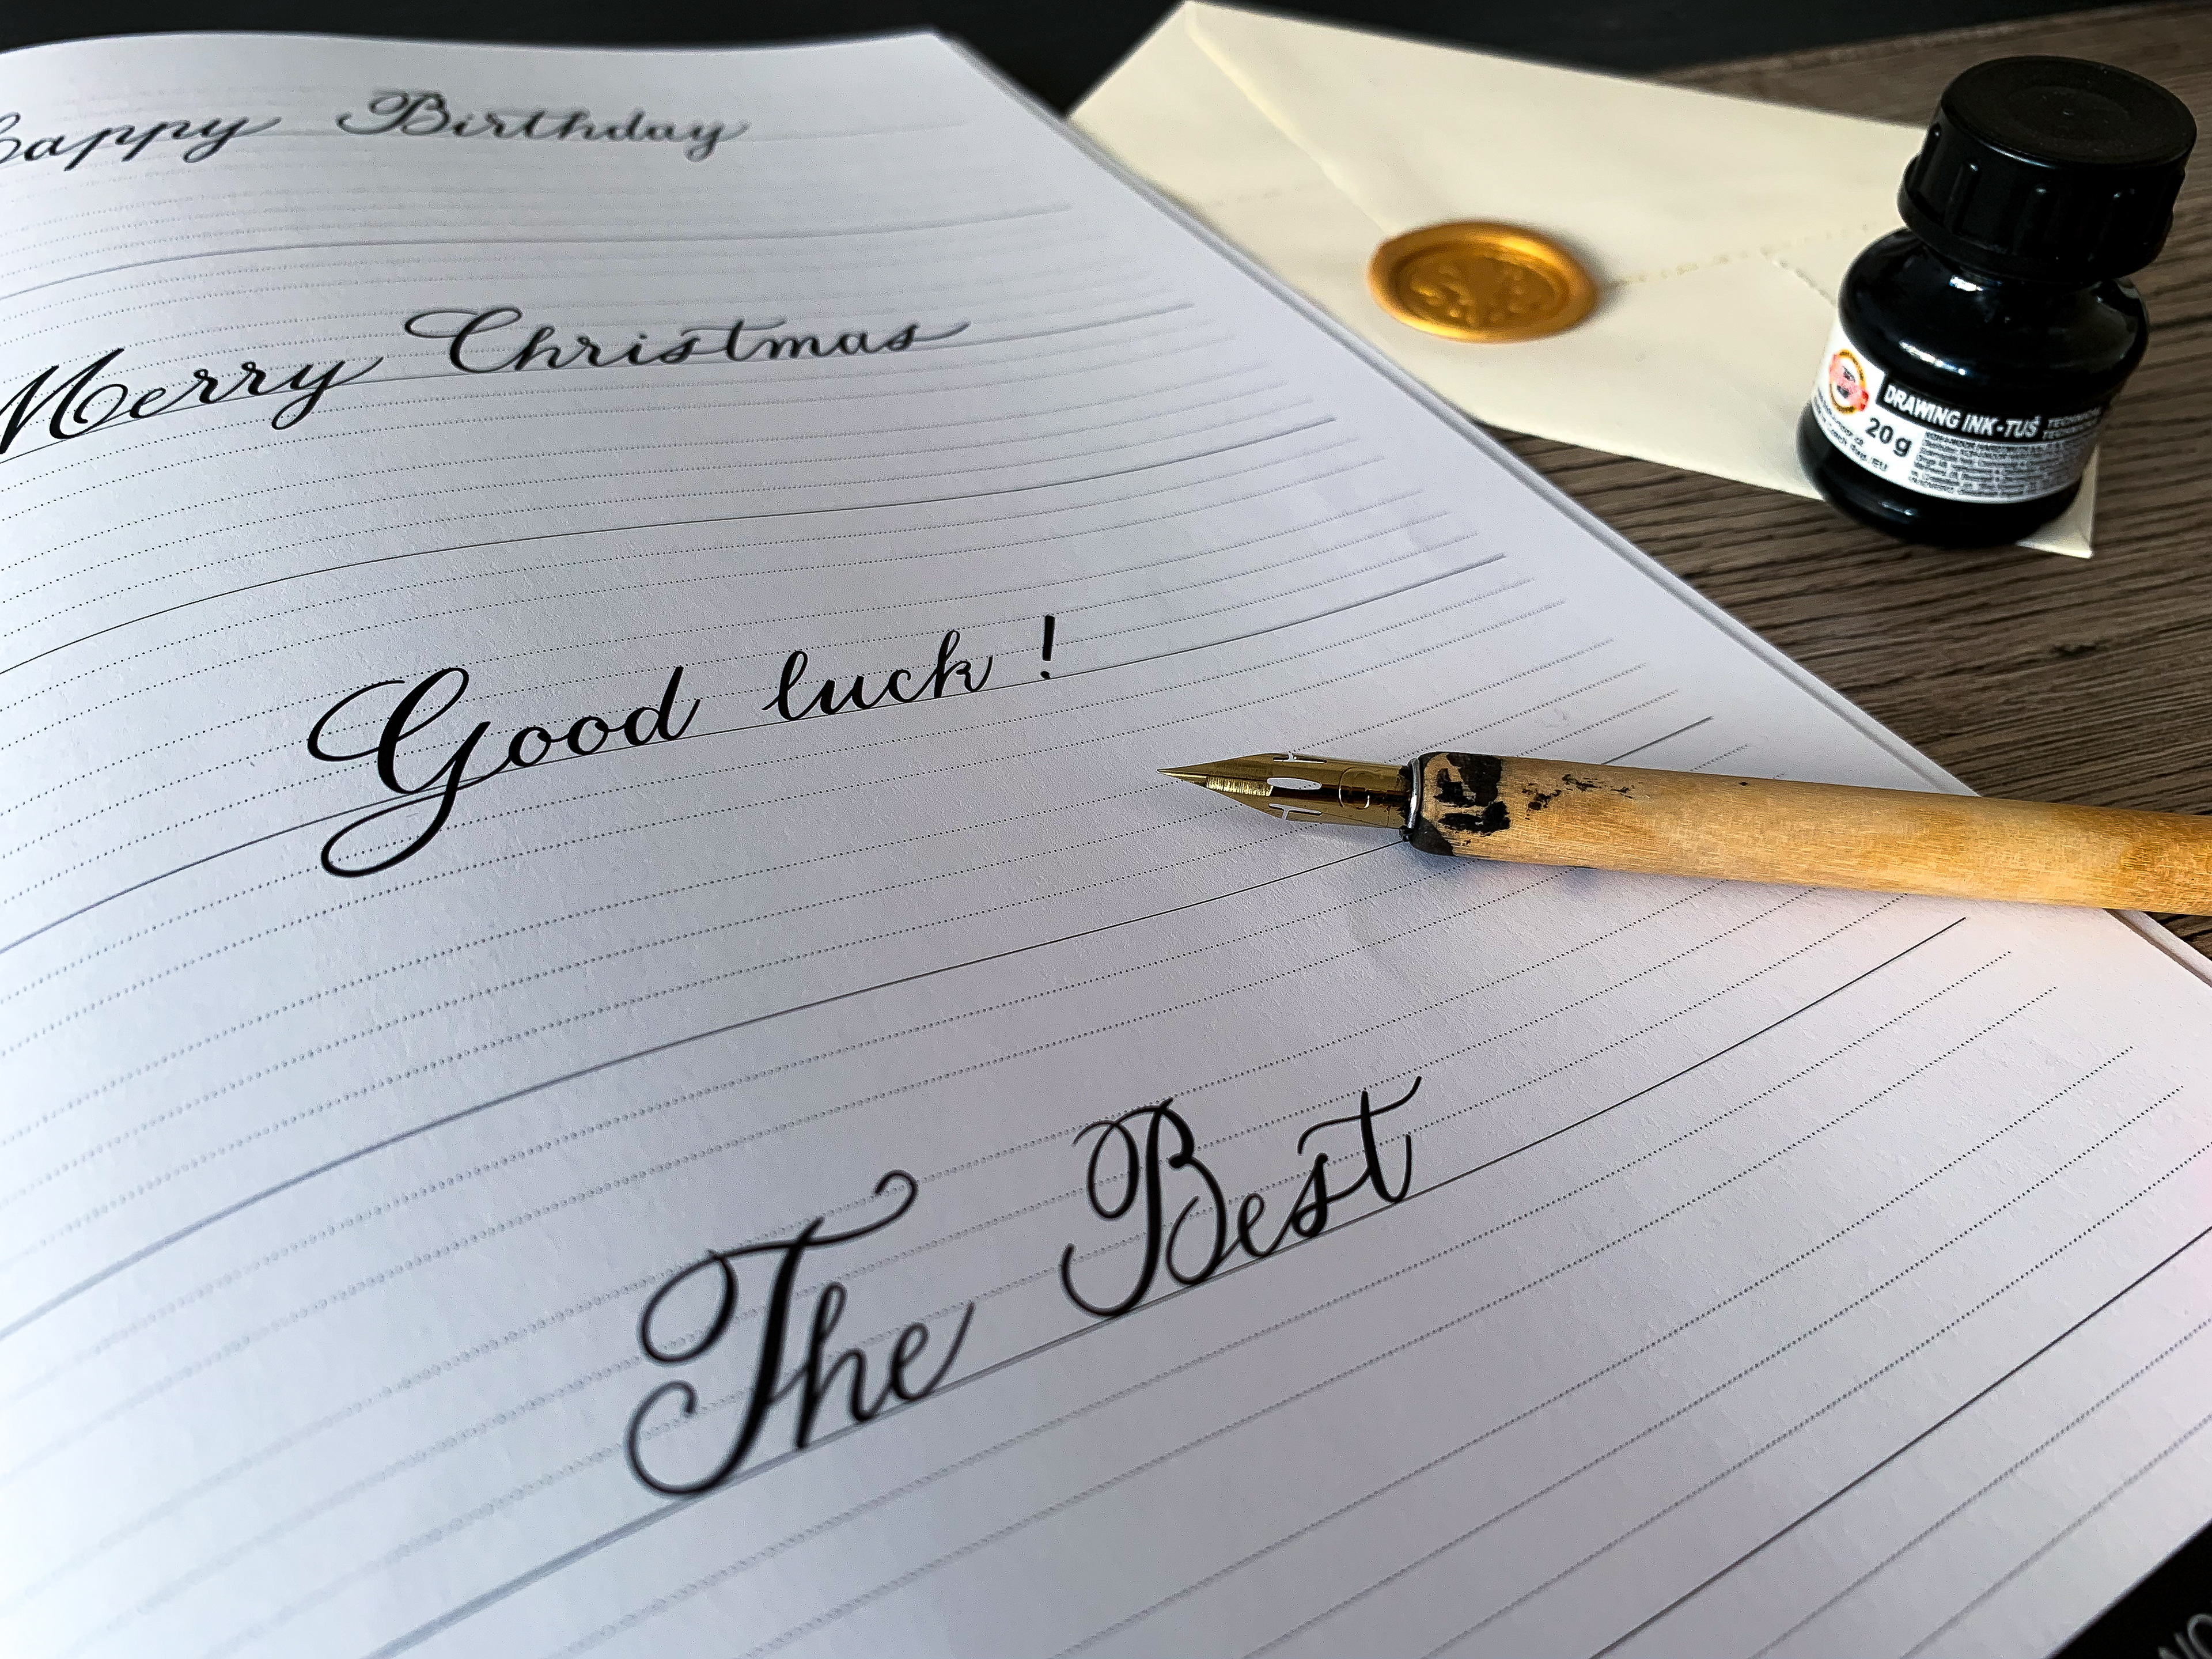 happy Birthday
Merry Christmas
Good luck !
The Best
DRAWING INK-TUŠ
20 g